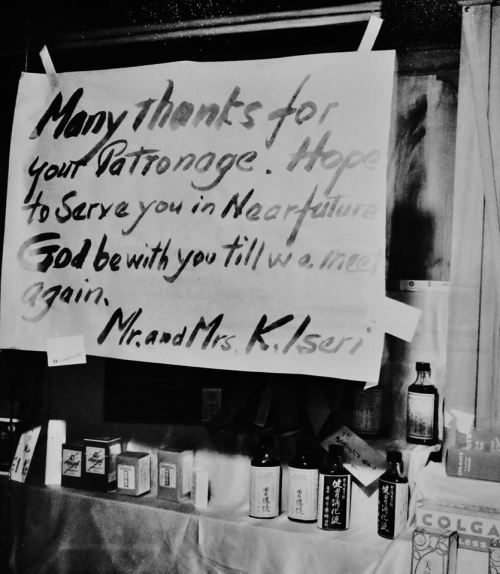 Many thanks for
your Patronage. Hope
to Serve you in Near future
God be with you till we meet
again.
Mr. and Mrs. K. Iseri
健胃消化液
COLGA